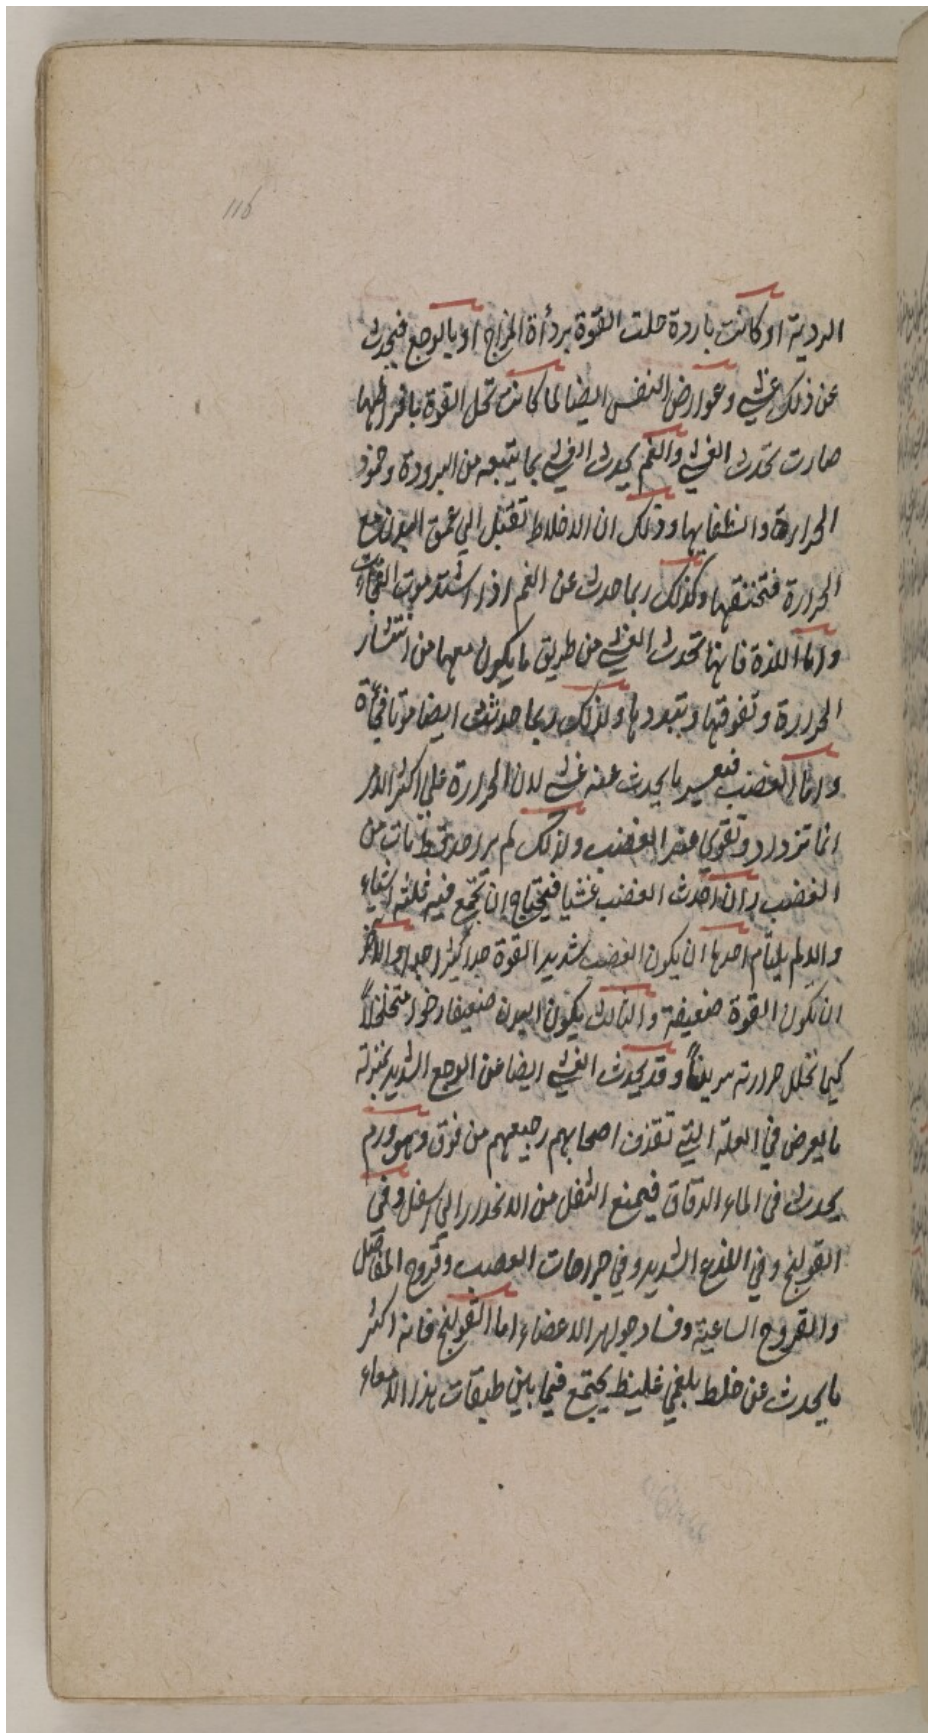 116
الردية او كانت باردة حلت القوة بردأة المزاج او بالوجع فيحدث
عن ذلك غشي وعوارض النفس ايضا لما كانت تحل القوة بافراطها
صارت تحدث الغشي والغم يحدث الغشي بما يتبعه من البرودة وخمود
الحرارة وانطفايها وذلك ان الاخلاط تقبل الى عمق البدن مع
الحرارة فتخنقها وكذلك ربما حدث عن الغم اذا اشتد موت الفجأة
واما اللذة فانها تحدث الغشي من طريق ما يكون معها من انتشار
الحرارة وتفرقتها وتبددها ولذلك ربما حدثت ايضا موتا فجأة
واما الغضب فبعسير ما يحدث عنه غشي لان الحرارة على اكثر الامر
انما تزداد وتقوي عند الغضب ولذلك لم نر احدا قط مات من
الغضب وان احدث الغضب غشيا فيحتاج ان تجمع فيه ثلثة اشياء
والا لم يلتأم احدها ان يكون الغضب شديد القوة جدا كثيرا جدا والاخر
ان تكون القوة ضعيفة والثالث يكون البدن ضعيفا رخوا متخلخلاً
كيما تحلل حرارته سريعاً وقد يحدث الغشي ايضا عن الوجع الشديد بمنزلة
ما يعرض في العلة التي تقذف اصحابهم رجيعهم من فوق وهو ورم
يحدث في الماء الدقاق فيمنع الثفل من الانحدار الي اسفل وفي
القولنج وفي اللذع الشديد وفي جراحات العصب وقروح المفاصل
والقروح الساعية وفساد جواهر الاعضاء اما القولنج فانه اكثر
ما يحدث عن خلط بلغمي غليظ يجتمع فيما بين طبقات هذا الامعاء